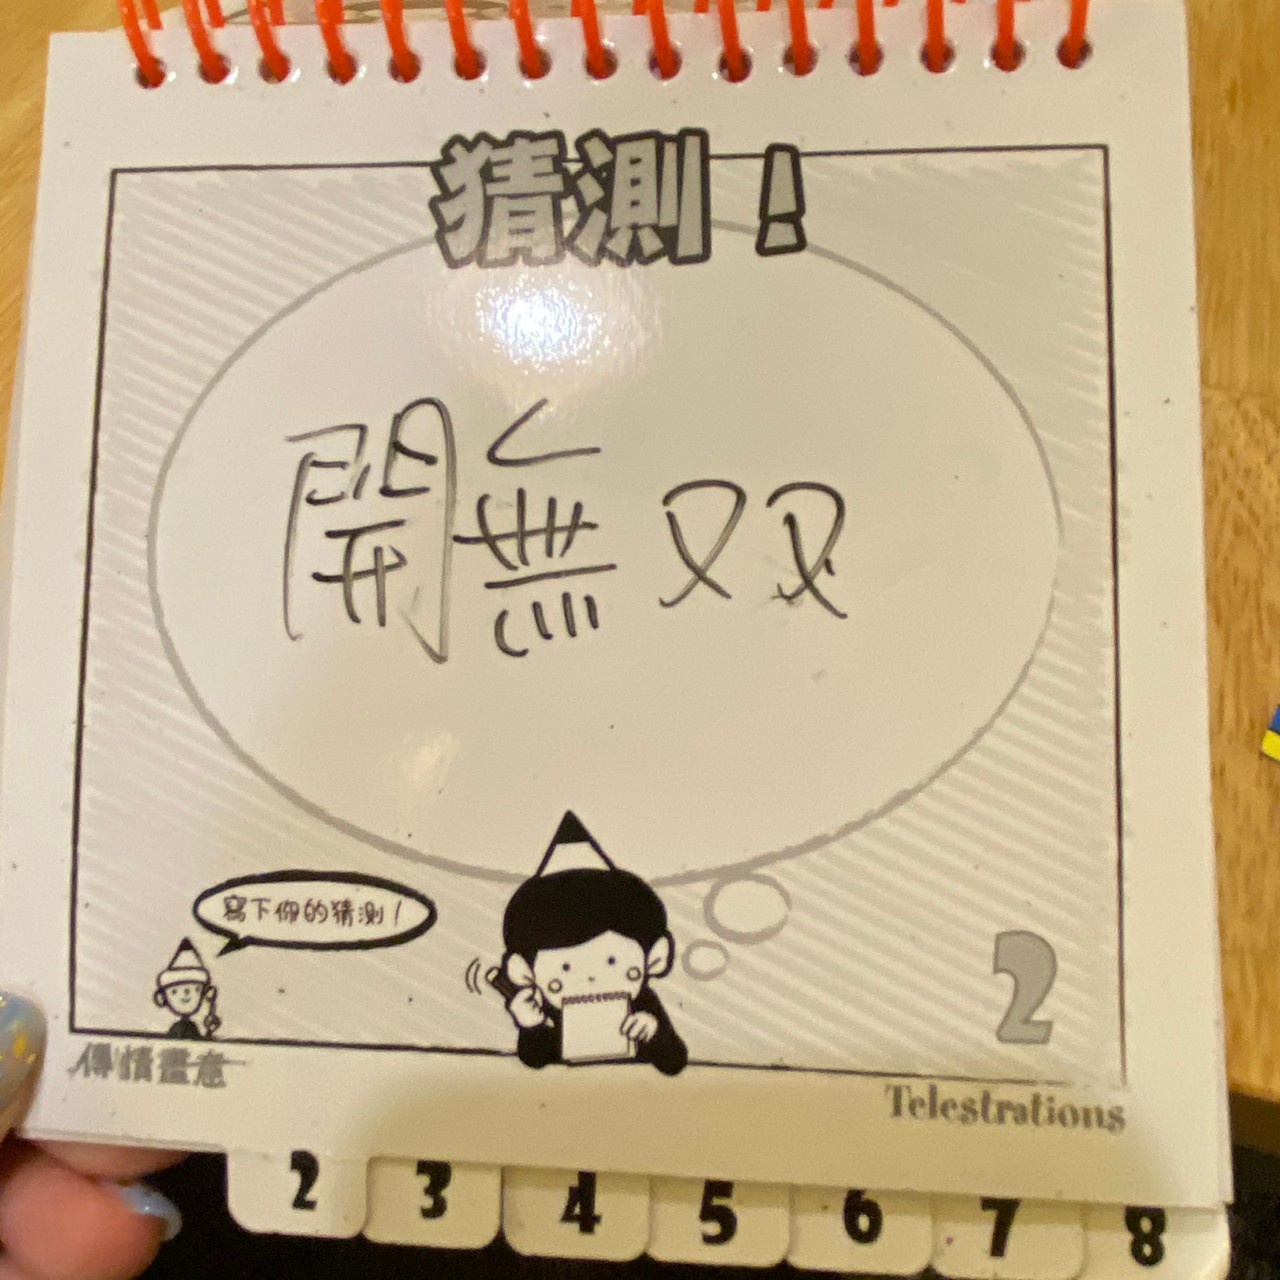 猜測！
開無双
寫下你的猜測！
2
傳情畫意
Telestrations
2 3 4 5 6 7 8